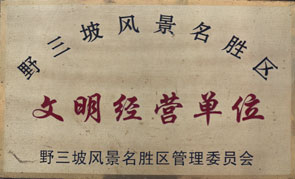 野三坡风景名胜区
文明经营单位
野三坡风景名胜区管理委员会